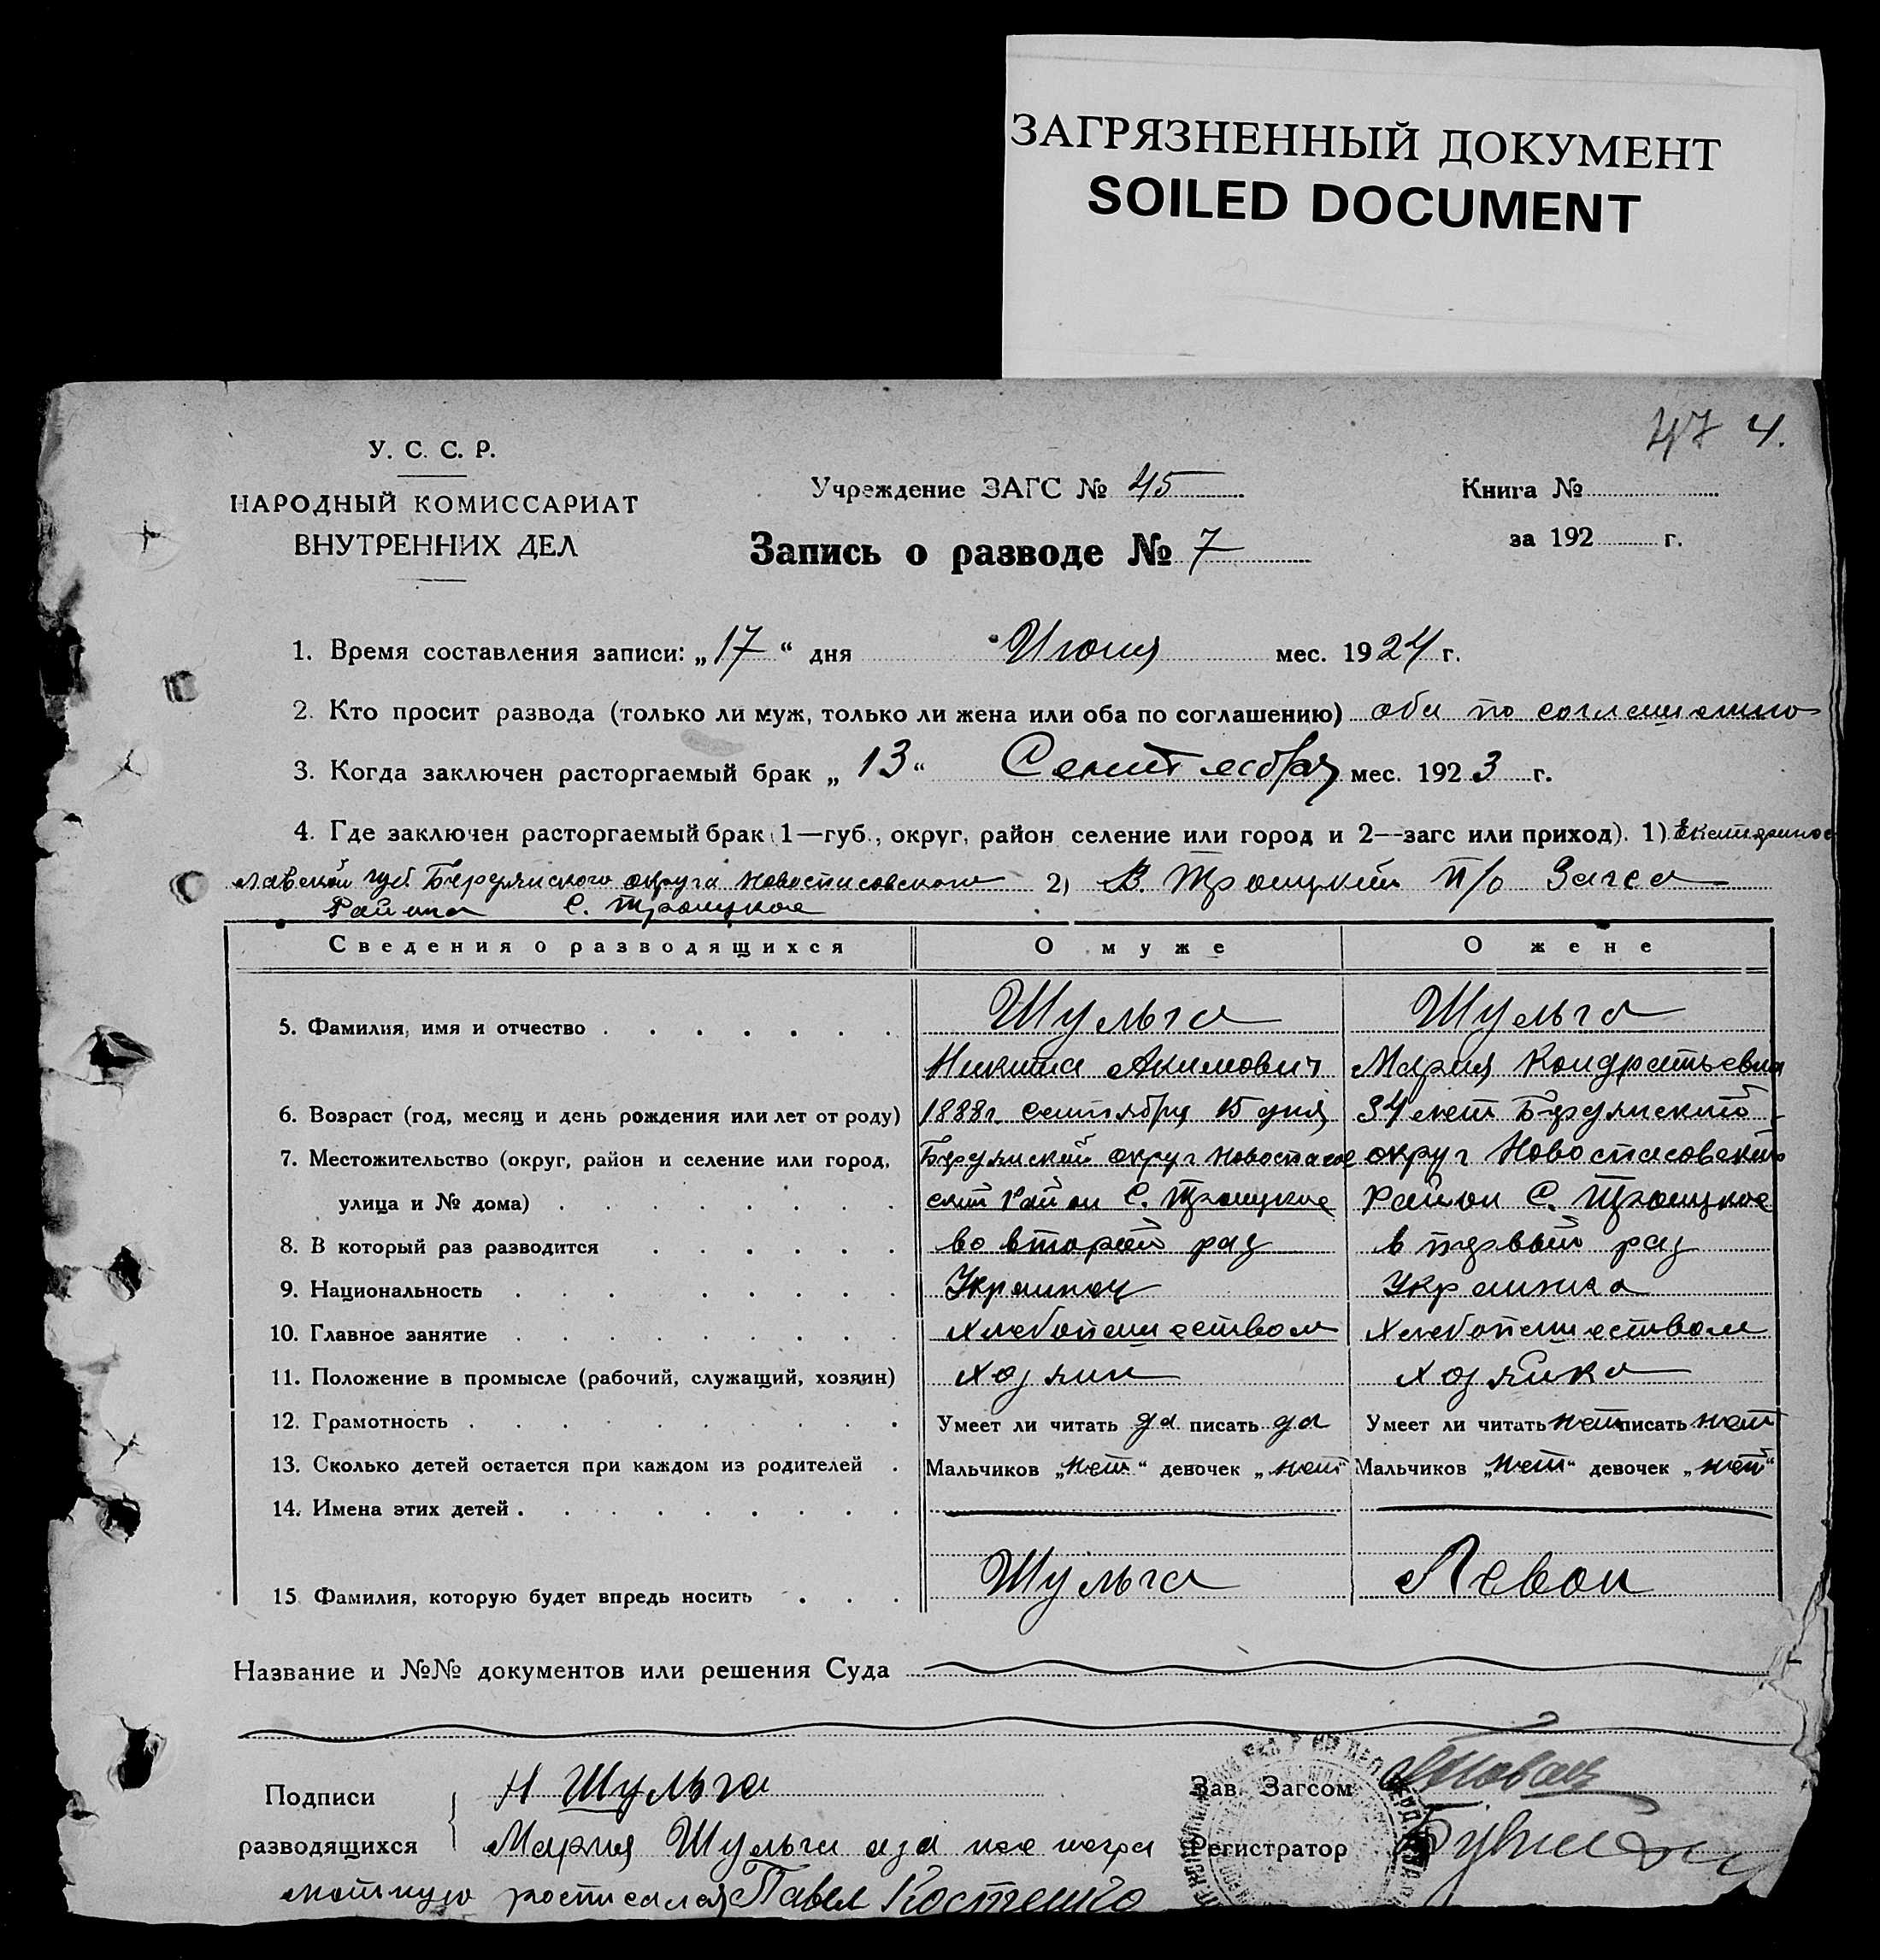 ЗАГРЯЗНЕННЫЙ ДОКУМЕНТ
SOILED DOCUMENT
47 4.
У. С. С. Р.
НАРОДНЫЙ КОМИССАРИАТ
ВНУТРЕННИХ ДЕЛ
Учреждение ЗАГС № 45
Книга №
за 192 г.
Запись о разводе № 7
1. Время составления записи: „17“ дня Июня мес. 1924 г.
2. Кто просит развода (только ли муж, только ли жена или оба по соглашению) оба по соглашению
3. Когда заключен расторгаемый брак „13“ Сентября мес. 1923 г.
4. Где заключен расторгаемый брак (1—губ., округ, район селение или город и 2—загс или приход). 1) Екатеринос
лавской губ Бердянского округа Новоспасовского 2) В Троицким п/о Загса
Района С. Троицкое
Сведения о разводящихся О муже О жене
5. Фамилия, имя и отчество Шульга Шульга
Никита Акимович Мария Кондратьевна
6. Возраст (год, месяц и день рождения или лет от роду) 1888г. сентября 15 дня 34 лет Бердянский
7. Местожительство (округ, район и селение или город, Бердянский округ Новоспасов округ Новоспасовский
улица и № дома) ский район С. Троицкое Район С. Троицкое
8. В который раз разводится во второй раз в первый раз
9. Национальность Украинец Украинка
10. Главное занятие хлебопашеством хлебопашеством
11. Положение в промысле (рабочий, служащий, хозяин) хозяин хозяйка
12. Грамотность Умеет ли читать да писать да Умеет ли читать нет писать нет
13. Сколько детей остается при каждом из родителей Мальчиков „нет“ девочек „нет“ Мальчиков „нет“ девочек „нет“
14. Имена этих детей
15 Фамилия, которую будет впредь носить Шульга Левон
Название и №№ документов или решения Суда
Подписи Н Шульга Зав. Загсом
разводящихся Мария Шульга а за нее негра Регистратор
мотную росписался Павел Костенко